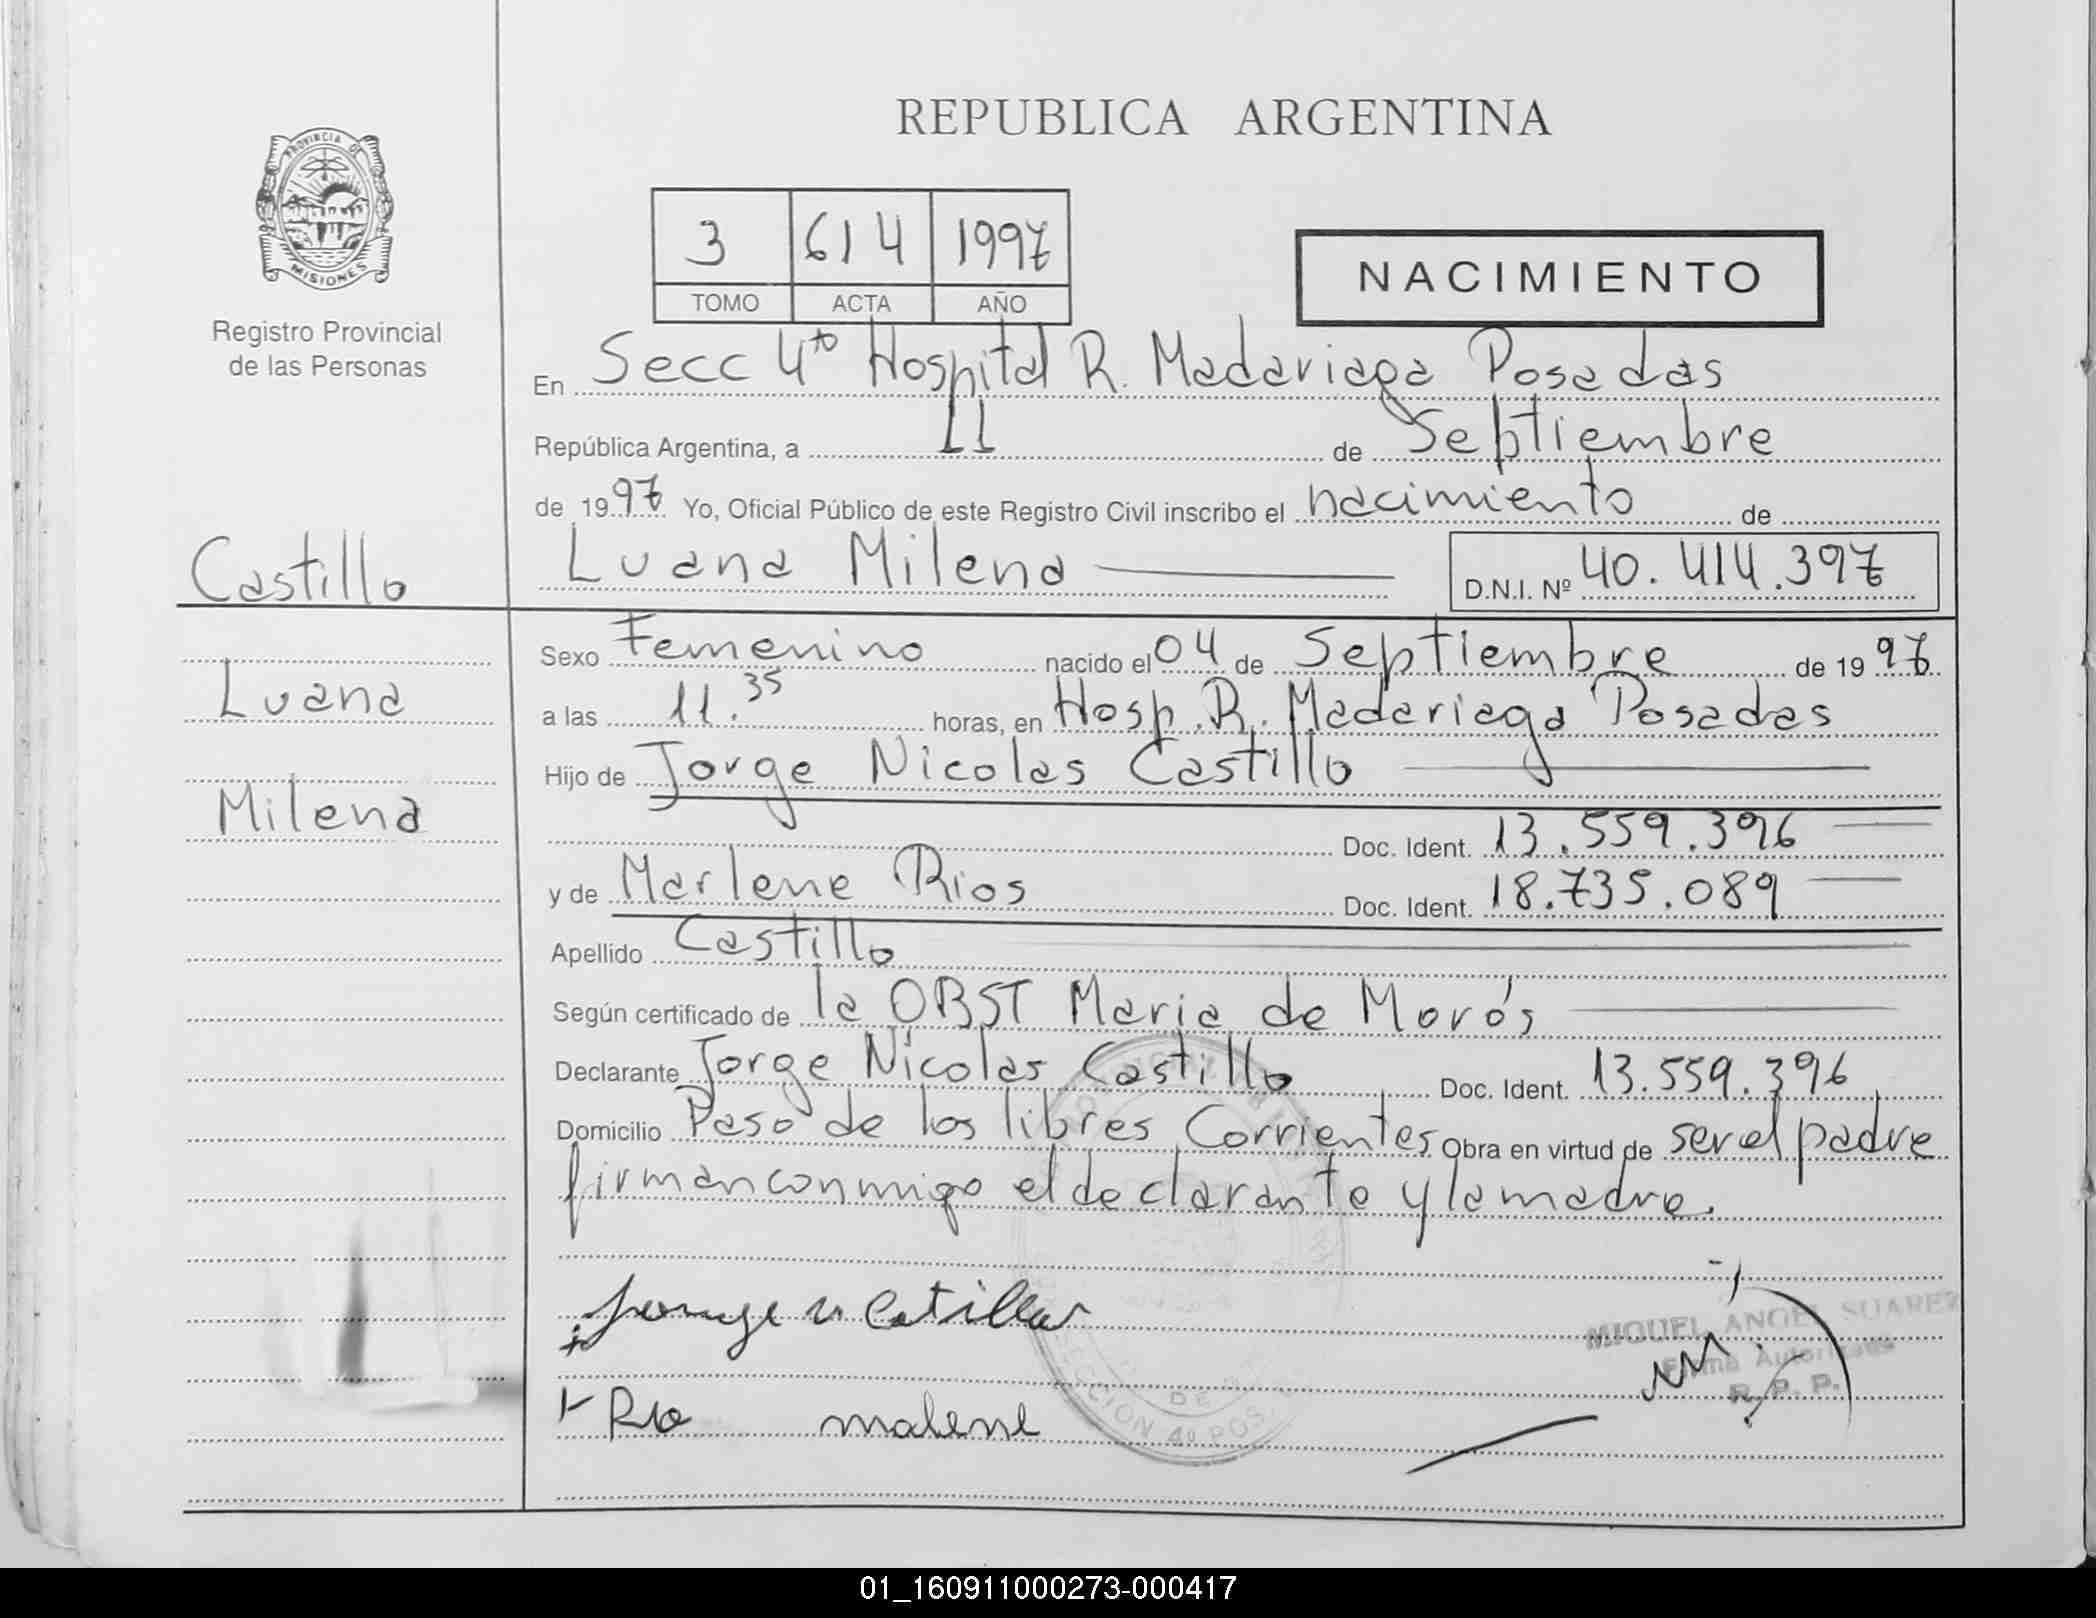 REPUBLICA ARGENTINA
PROVINCIA DE
MISIONES
Registro Provincial
de las Personas
3 614 1997
TOMO ACTA AÑO
NACIMIENTO
En Secc 4to Hospital R. Madariaga Posadas
República Argentina, a 11 de Septiembre
de 1997 Yo, Oficial Público de este Registro Civil inscribo el nacimiento de
Luana Milena D.N.I. Nº 40.414.397
Castillo
Luana
Milena
Sexo Femenino nacido el 04 de Septiembre de 1997
a las 11.35 horas, en Hosp. R. Madariaga Posadas
Hijo de Jorge Nicolas Castillo
Doc. Ident. 13.559.396
y de Marlene Rios Doc. Ident. 18.735.089
Apellido Castillo
Según certificado de la OBST Maria de Morós
Declarante Jorge Nicolas Castillo Doc. Ident. 13.559.396
Domicilio Paso de los libres Corrientes Obra en virtud de ser el padre
firman conmigo el declarante y la madre.
MIGUEL ANGEL SUAREZ
Firma Autorizada
R. P. P.
Rio malene
SECCION 4º POS.
01_160911000273-000417